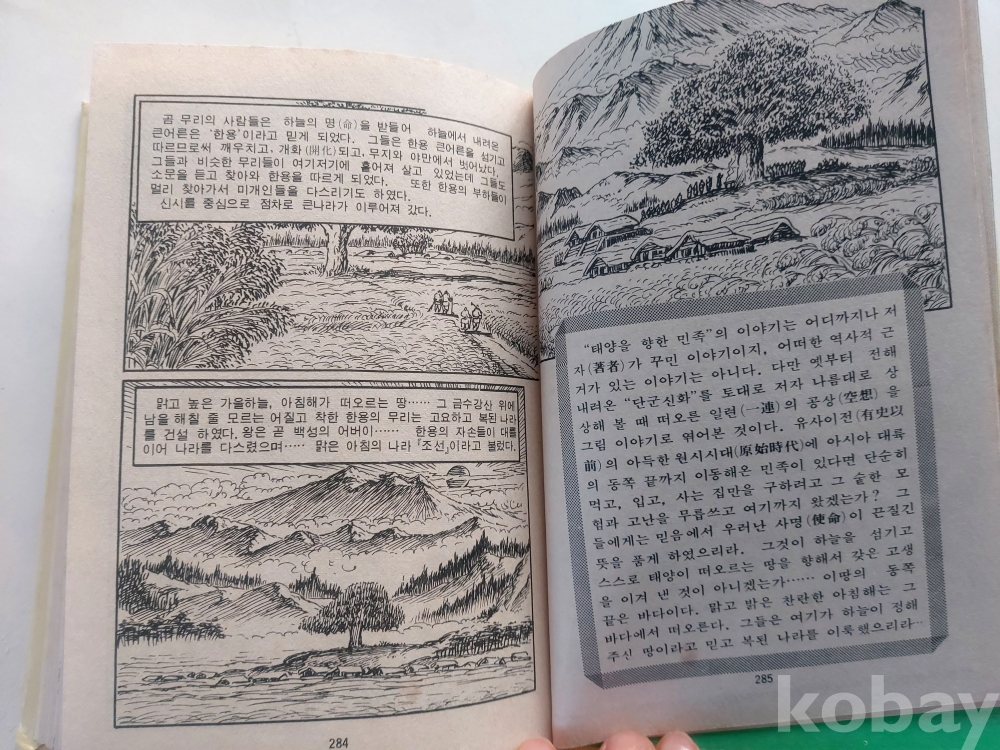 곰 무리의 사람들은 하늘의 명(命)을 받들어 하늘에서 내려온
큰어른은 '한용'이라고 믿게 되었다. 그들은 한용 큰어른을 섬기고
따르므로써 깨우치고, 개화(開化)되고, 무지와 야만에서 벗어났다.
그들과 비슷한 무리들이 여기저기에 흩어져 살고 있었는데 그들도
소문을 듣고 찾아와 한용을 따르게 되었다. 또한 한용의 부하들이
멀리 찾아가서 미개인들을 다스리기도 하였다.
신시를 중심으로 점차로 큰나라가 이루어져 갔다.
맑고 높은 가을하늘, 아침해가 떠오르는 땅…… 그 금수강산 위에
남을 해칠 줄 모르는 어질고 착한 한용의 무리는 고요하고 복된 나라
를 건설 하였다. 왕은 곧 백성의 어버이…… 한용의 자손들이 대를
이어 나라를 다스렸으며…… 맑은 아침의 나라 『조선』이라고 불렀다.
284
"태양을 향한 민족"의 이야기는 어디까지나 저
자(著者)가 꾸민 이야기이지, 어떠한 역사적 근
거가 있는 이야기는 아니다. 다만 옛부터 전해
내려온 "단군신화"를 토대로 저자 나름대로 상
상해 볼 때 떠오른 일련(一連)의 공상(空想)을
그림 이야기로 엮어본 것이다. 유사이전(有史以
前)의 아득한 원시시대(原始時代)에 아시아 대륙
의 동쪽 끝까지 이동해온 민족이 있다면 단순히
먹고, 입고, 사는 집만을 구하려고 그 숱한 모
험과 고난을 무릅쓰고 여기까지 왔겠는가? 그
들에게는 믿음에서 우러난 사명(使命)이 끈질긴
뜻을 품게 하였으리라. 그것이 하늘을 섬기고
스스로 태양이 떠오르는 땅을 향해서 갖은 고생
을 이겨 낸 것이 아니겠는가…… 이땅의 동쪽
끝은 바다이다. 맑고 밝은 찬란한 아침해는 그
바다에서 떠오른다. 그들은 여기가 하늘이 정해
주신 땅이라고 믿고 복된 나라를 이룩했으리라…
285
kobay